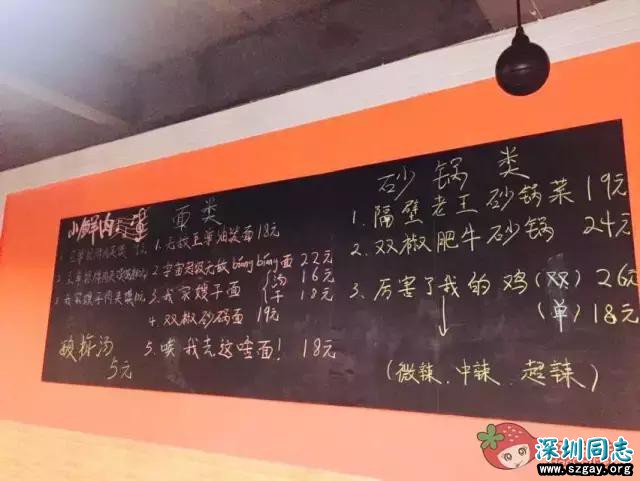 小鲜肉
酸梅汤
5元
面类
1. 无敌五草油泼面 18元
2. 宇宙超级无敌biángbiáng面 22元
3. 我家嫂子面
汤 16元
干 18元
4. 双椒砂锅面 19元
5. 唉我去这啥面! 18元
砂锅类
1. 隔壁老王砂锅菜 19元
2. 双椒肥牛砂锅 24元
3. 厉害了我的鸡 (双) 26元
(单) 18元
(微辣、中辣、超辣)
深圳同志
www.szgay.org